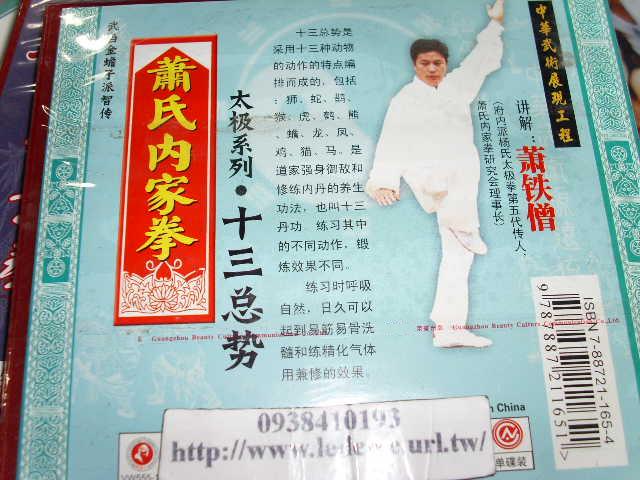 中華武術展现工程
武当金蟾子派智传
蕭氏内家拳
太极系列·十三总势
十三总势是
采用十三种动物
的动作的特点编
排而成的，包括
：狮、蛇、鹞、
猴、虎、鹤、熊
、蟾、龙、凤、
鸡、猫、马。是
道家强身御敌和
修练内丹的养生
功法，也叫十三
丹功．练习其中
的不同动作，锻
炼效果不同。
练习时呼吸
自然，日久可以
起到易筋易骨洗
髓和练精化气体
用兼修的效果。
讲解：萧铁僧
（府内派杨氏太极拳第五代传人、
萧氏内家拳研究会理事长）
Guangzhou Beauty Culture Communication Co.,Ltd.
ISBN 7-88721-165-4
9787887211651>
0938410193
http://www.
url.tw/
China
单碟装